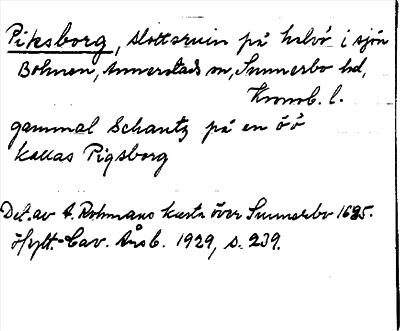 Piksborg, slottsruin på halvö i sjön
Bolmen, Annerstads sn, Sunnerbo hd,
Kronob. l.
gammal Schantz på en öö
kallas Pigsborg
Det. av A. Rohmans karta över Sunnerbo 1685.
Hylt.-Cav. Årsb. 1929, s. 239.